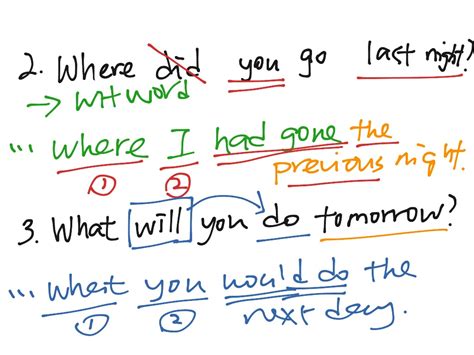 2. Where did you go last night?
→ WH word
... where I had gone the
previous night.
① ②
3. What will you do tomorrow?
... what you would do the
next day.
① ②